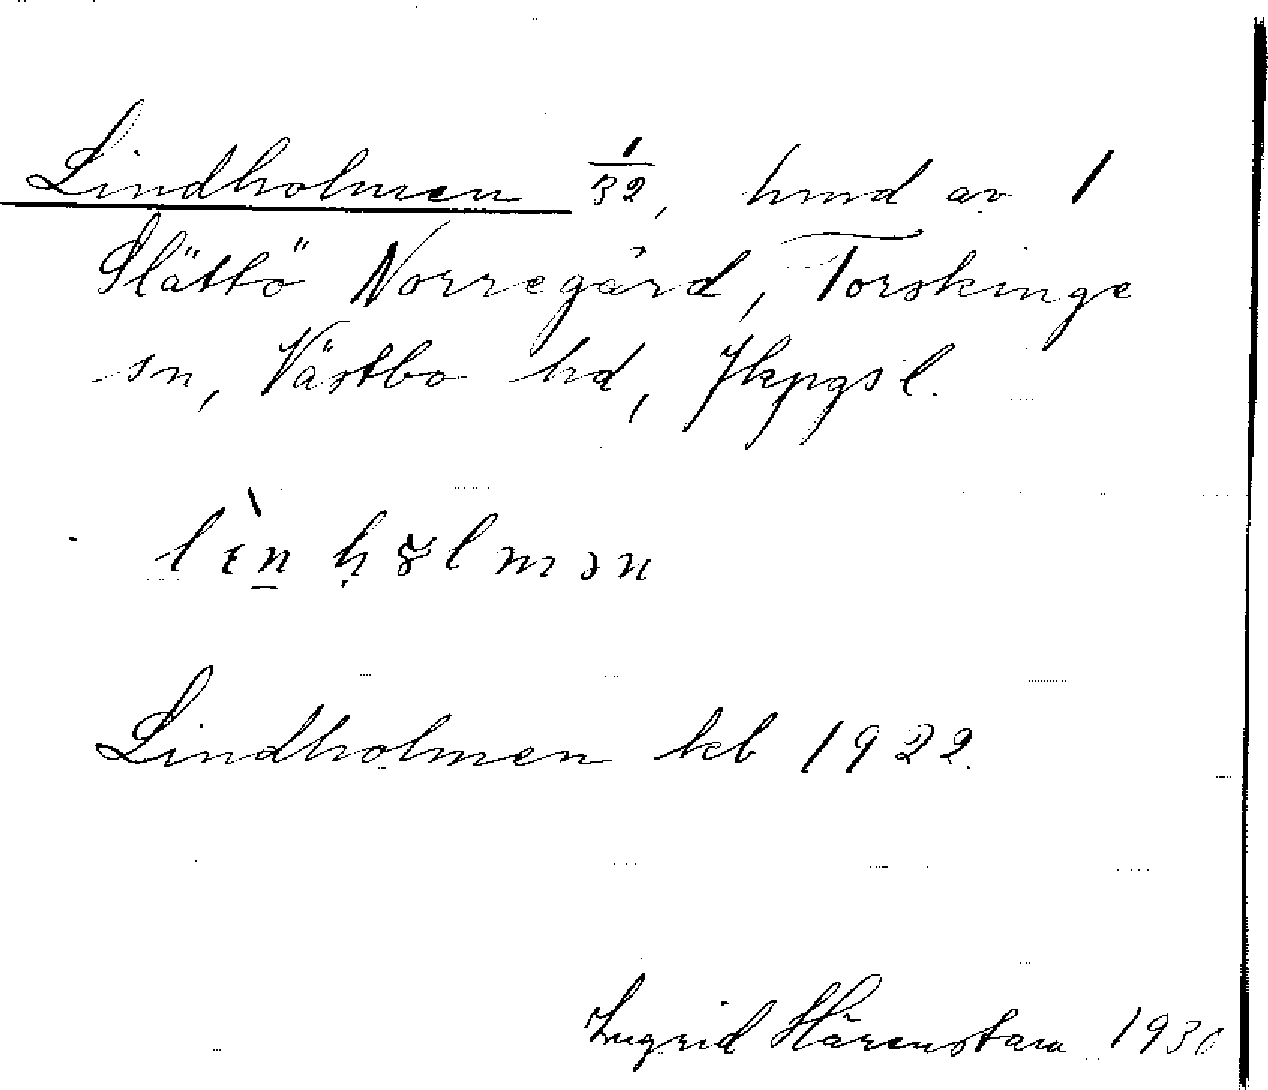 Lindholmen 1/32, hmd av 1
Slättö Norregård, Torskinge
sn, Västbo hd, Jkpgs l.
Lindholmen kb 1922.
Ingrid Härenstam 1930